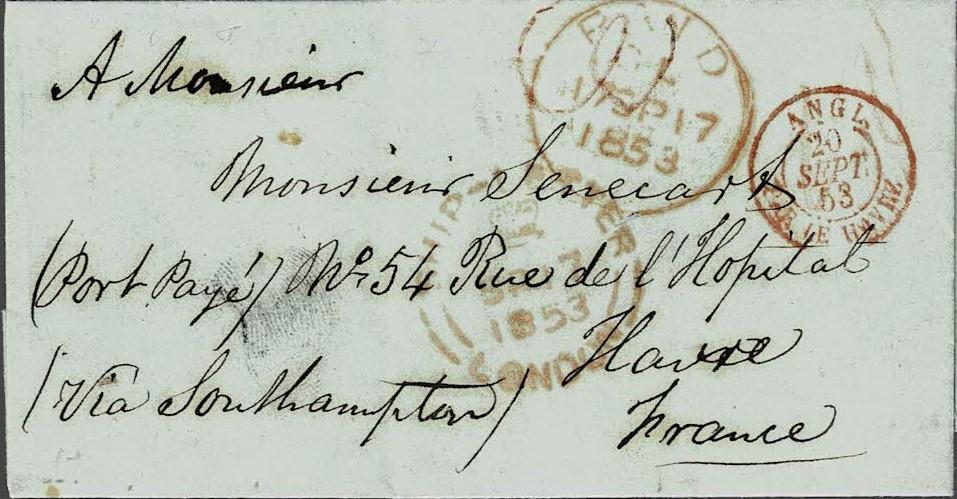 A Monsieur
Monsieur Senecart
(Port Payé) No. 54 Rue de l'Hopital
Havre
(Via Southampton)
France
17 SP 17
1853
ANGL.
20
SEPT.
53
LE HAVRE
SHIP LETTER
1853
LONDON